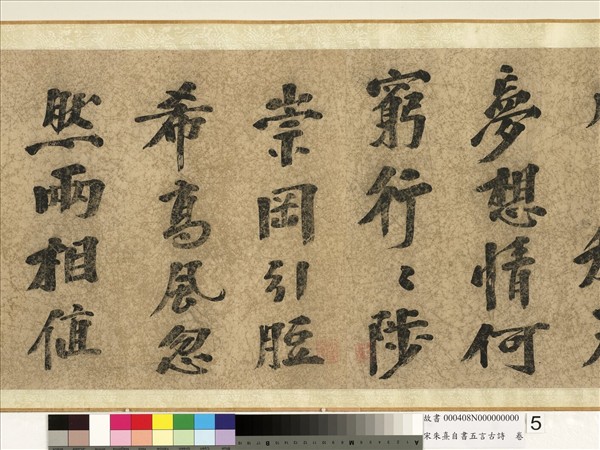 夢想情何
窮行〻陟
崇岡引脰
希高風忽
然兩相值
故書 000408N000000000
宋朱熹自書五言古詩 卷
5